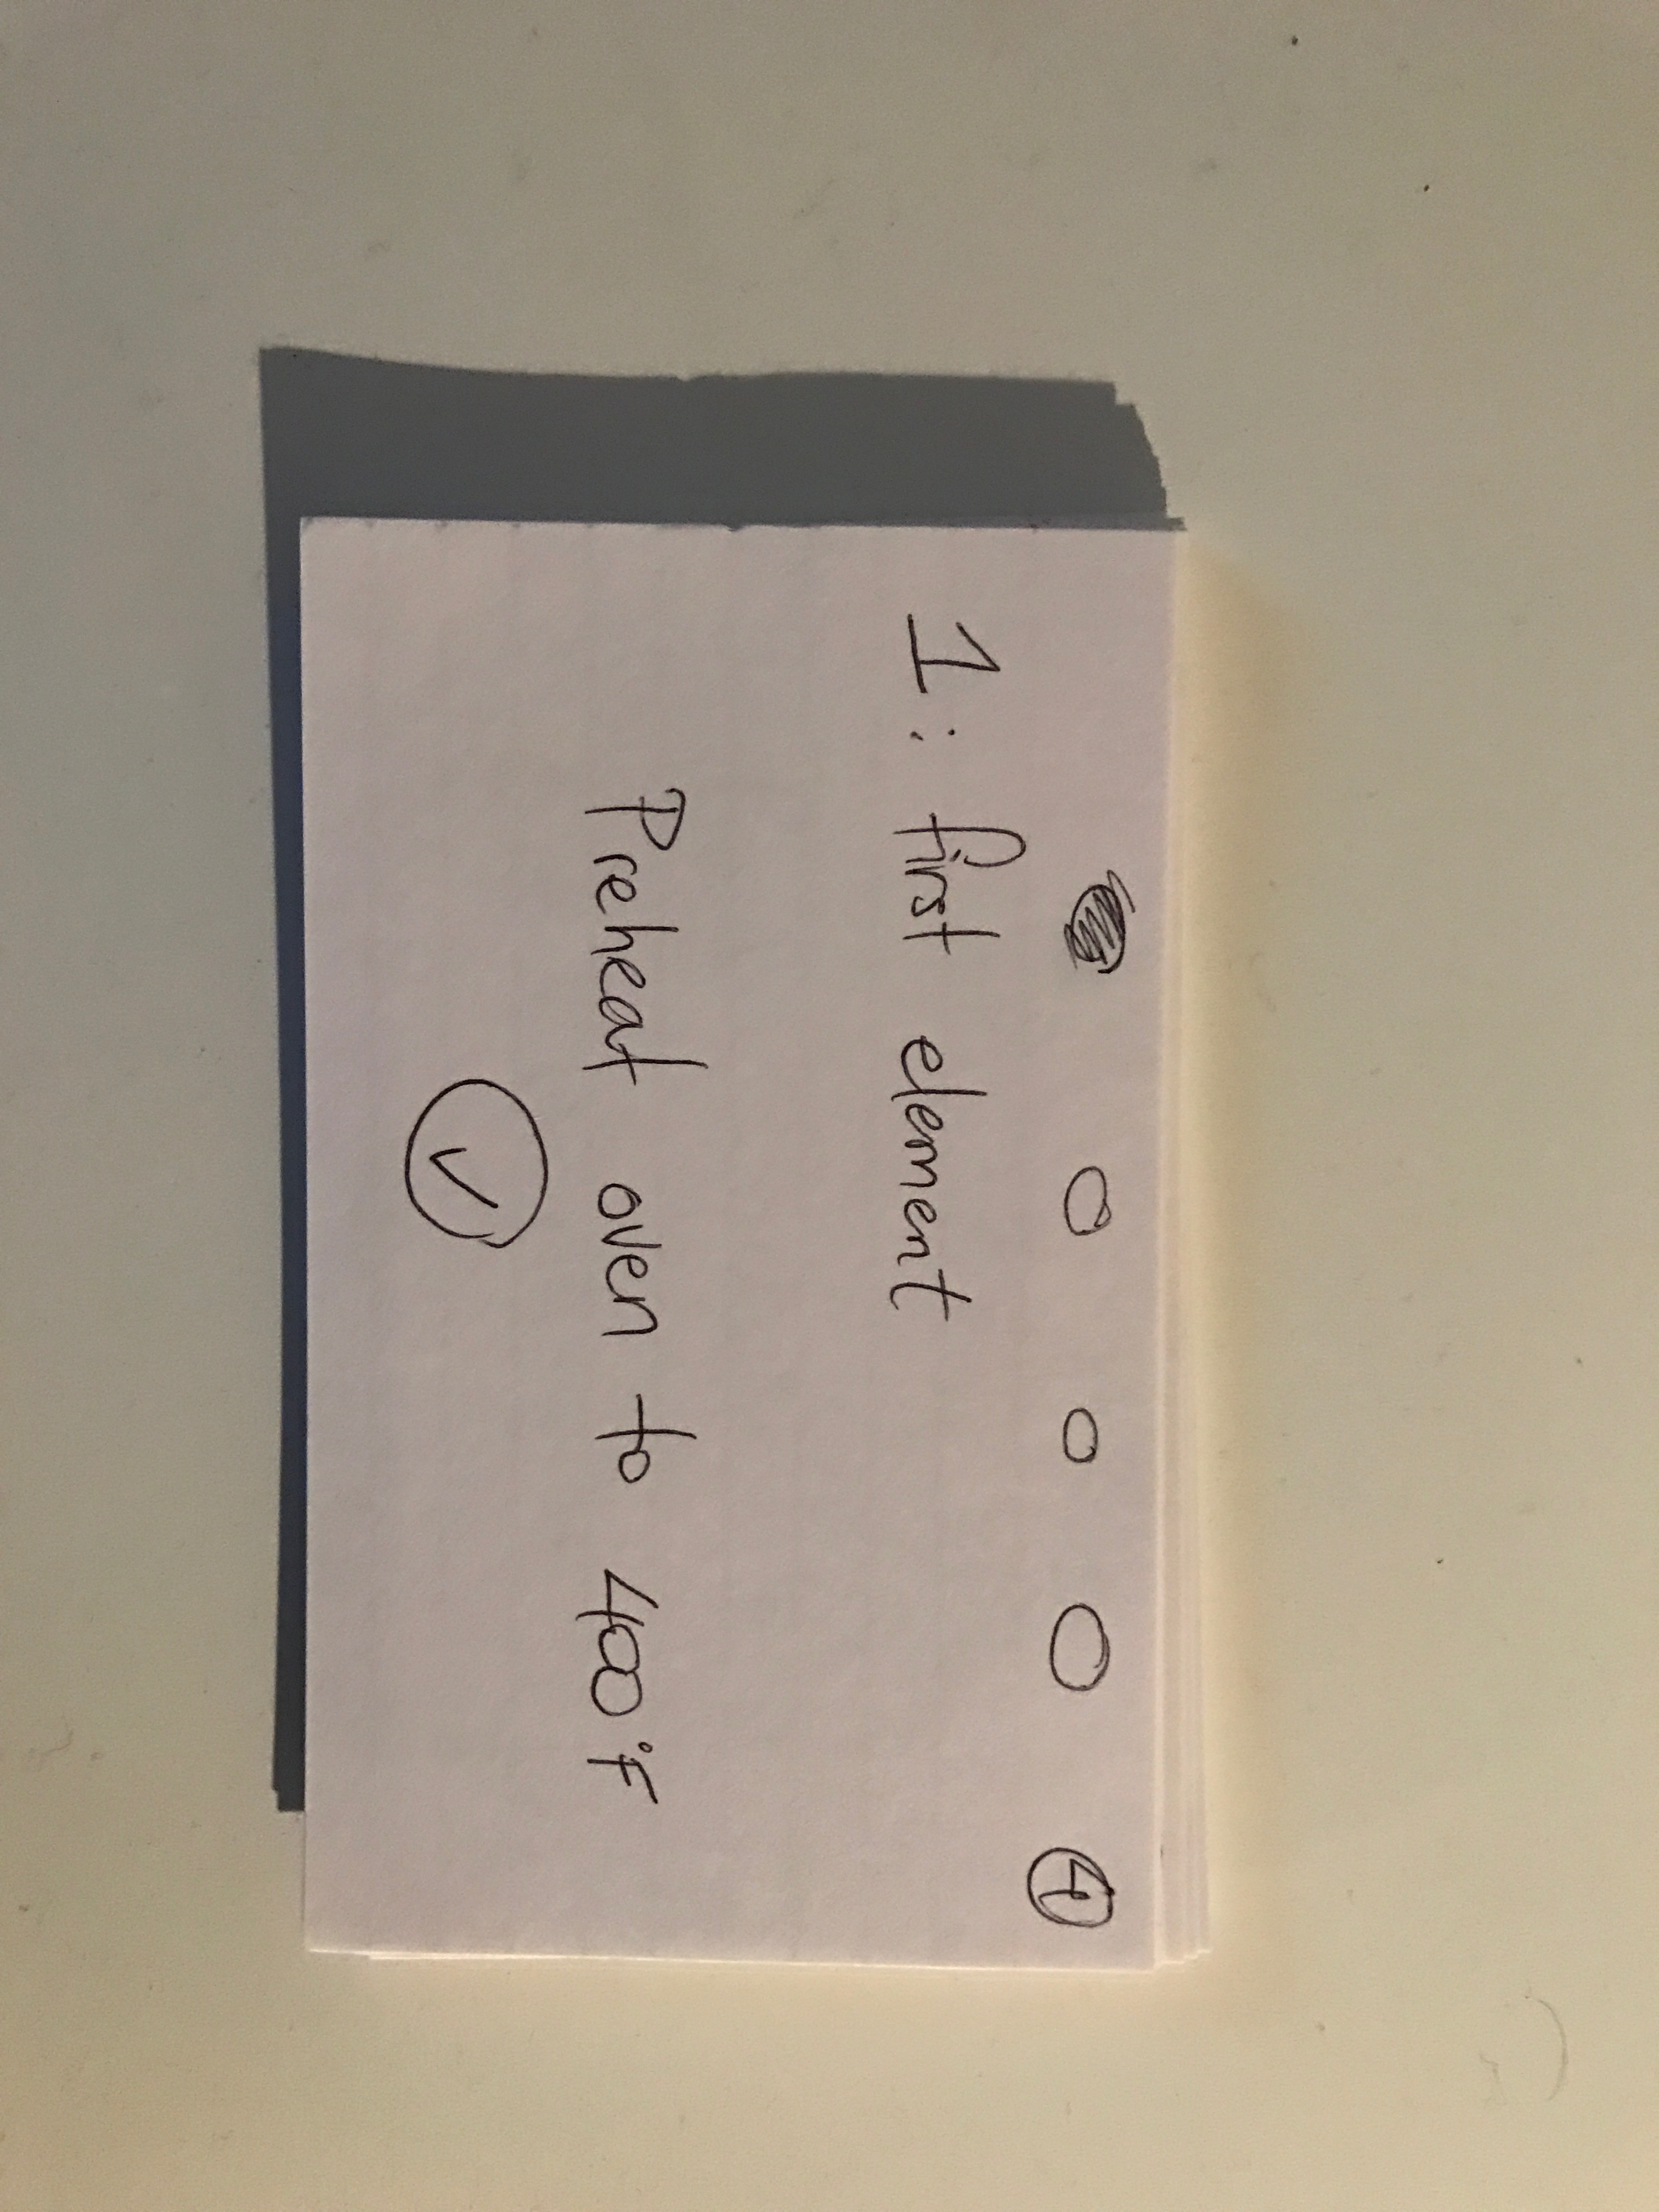 4
1: first element
Preheat oven to 400°F